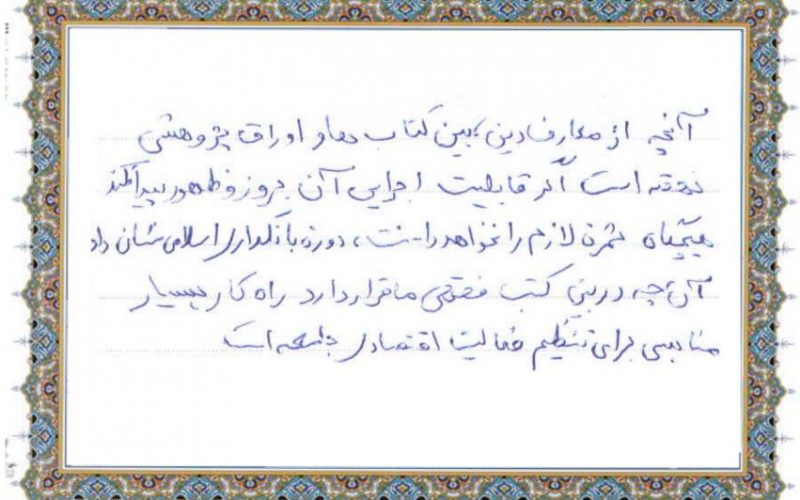 آنچه از معارف دینی بین کتاب ها و اوراق پژوهشی
نهفته است اگر قابلیت اجرایی آن بروز و ظهور پیدا نکند
هیچگاه ثمره لازم را نخواهد داشت، دوره بانکداری اسلامی نشان داد
آن چه در بین کتب فقهی ما قرار دارد راه کار بسیار
مناسبی برای تنظیم فعالیت اقتصادی جامعه است